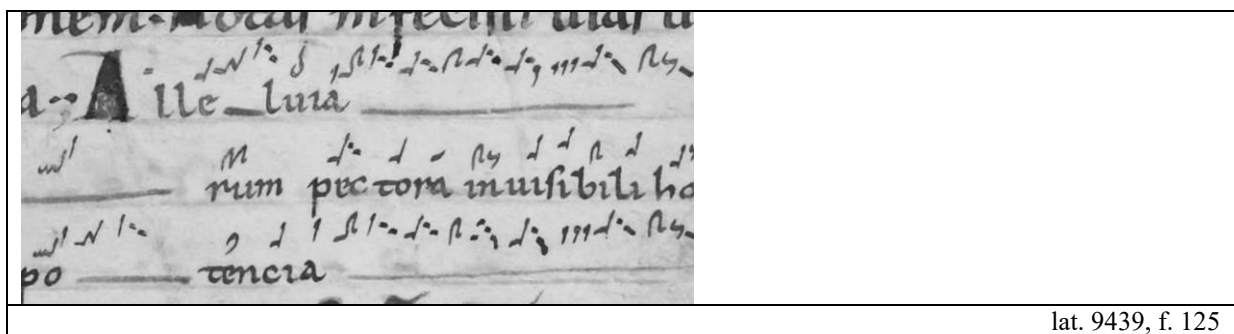 fecisti uias
a·; Alle luia
rum pectora inuisibili ho
po tencia
lat. 9439, f. 125